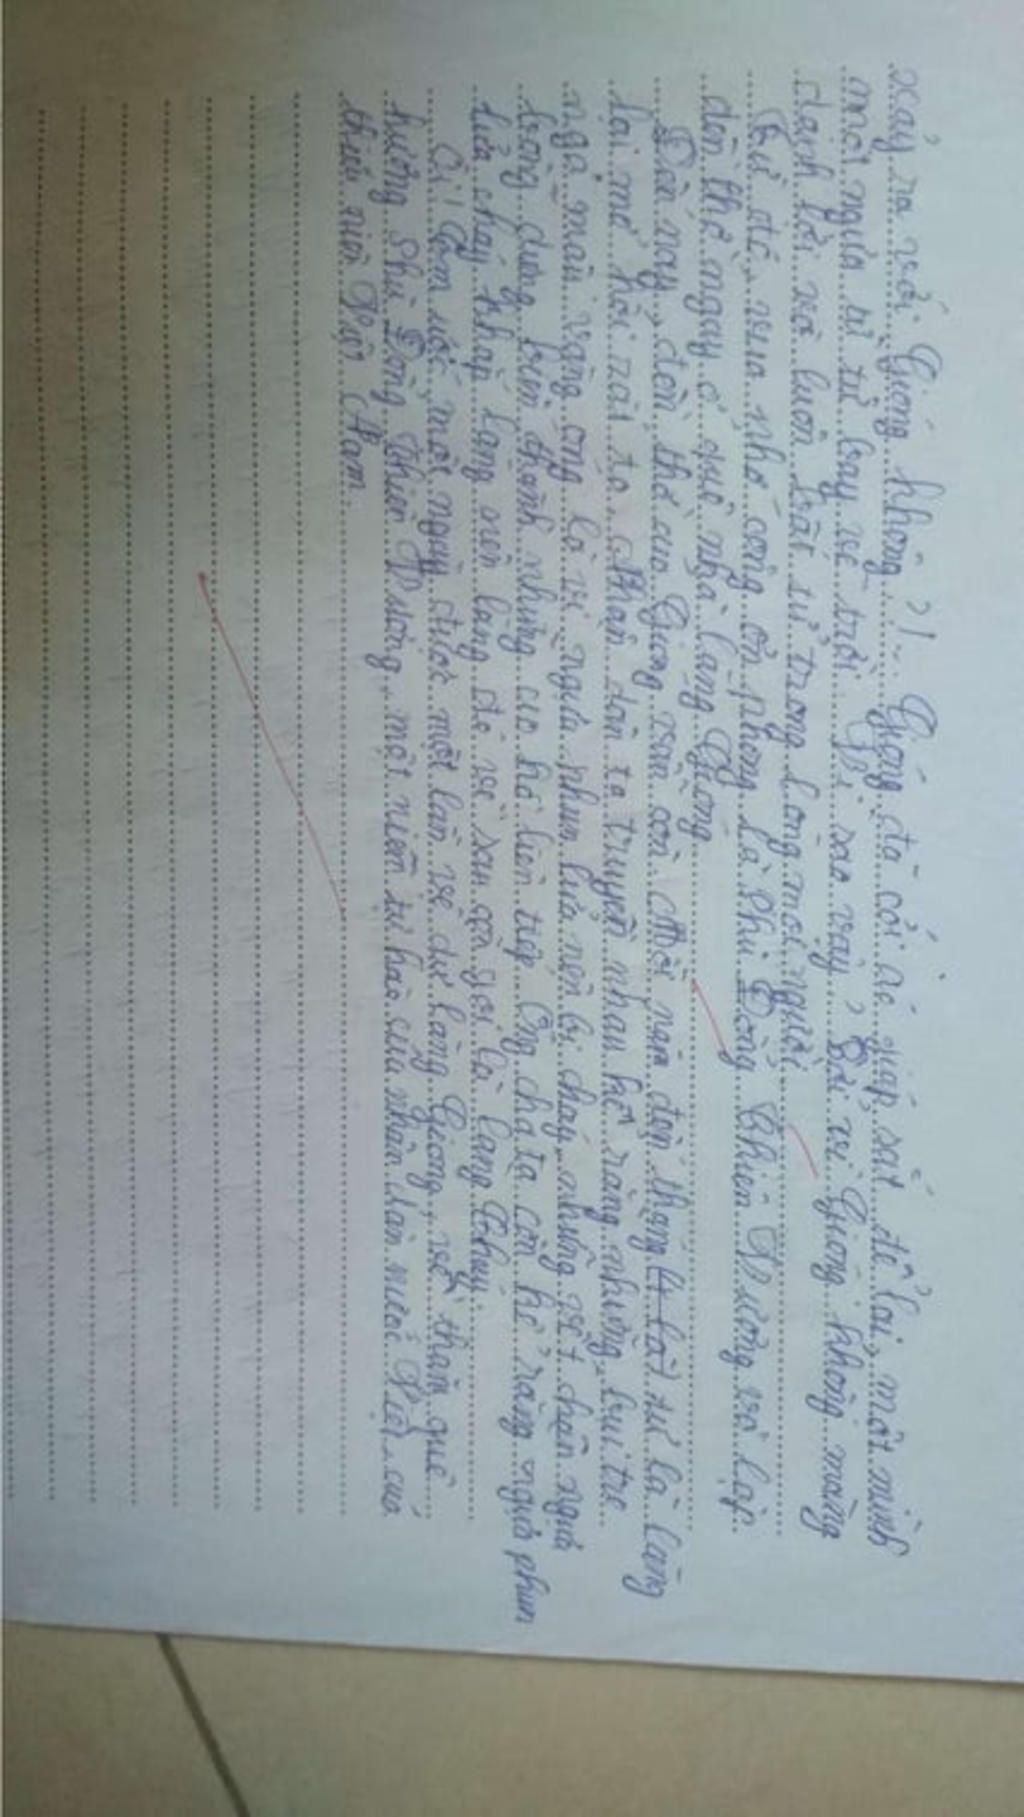 xảy ra với Gióng không ?!... Gióng đã cởi áo giáp sắt để lại, một mình
một ngựa từ từ bay về trời. Vì sao vậy? Bởi vì Gióng không màng
danh lợi và luôn bất tử trong lòng mọi người.
Từ đó, vua nhớ công ơn phong là Phù Đổng Thiên Vương và lập
đền thờ ngay ở quê nhà làng Gióng.
Đến nay, đền thờ của Gióng vẫn còn. Mỗi năm đến tháng tư là làng
lại mở hội rất to. Nhân dân ta truyền nhau kể rằng những bụi tre
ngả màu vàng óng là vì ngựa phun lửa nên bị cháy, những vết chân ngựa
biến thành những ao hồ liên tiếp. Ông cha ta còn kể rằng ngựa phun
lửa cháy khắp làng nên làng đó về sau còn gọi là làng Cháy.
Ôi! ước mọi người được một lần về dự làng Gióng, về thăm quê
hương Phù Đổng Thiên Vương, một niềm tự hào của nhân dân nước Việt, của
thiếu niên Việt Nam.